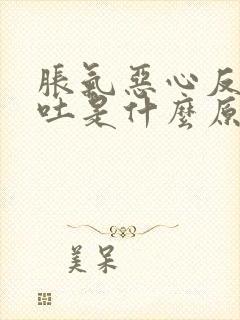 脹氣惡心反
吐是什麼原
美呆